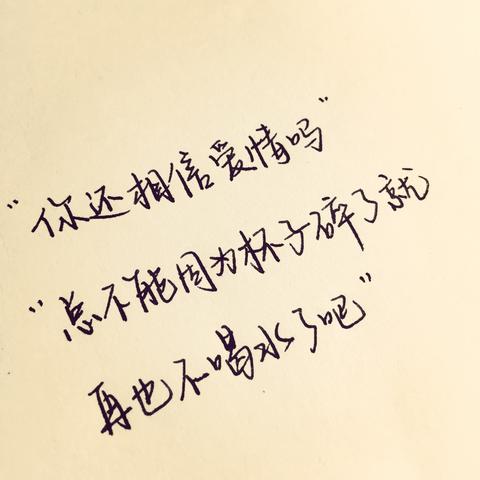 "你还相信爱情吗"
"总不能因为杯子碎了就
再也不喝水了吧"